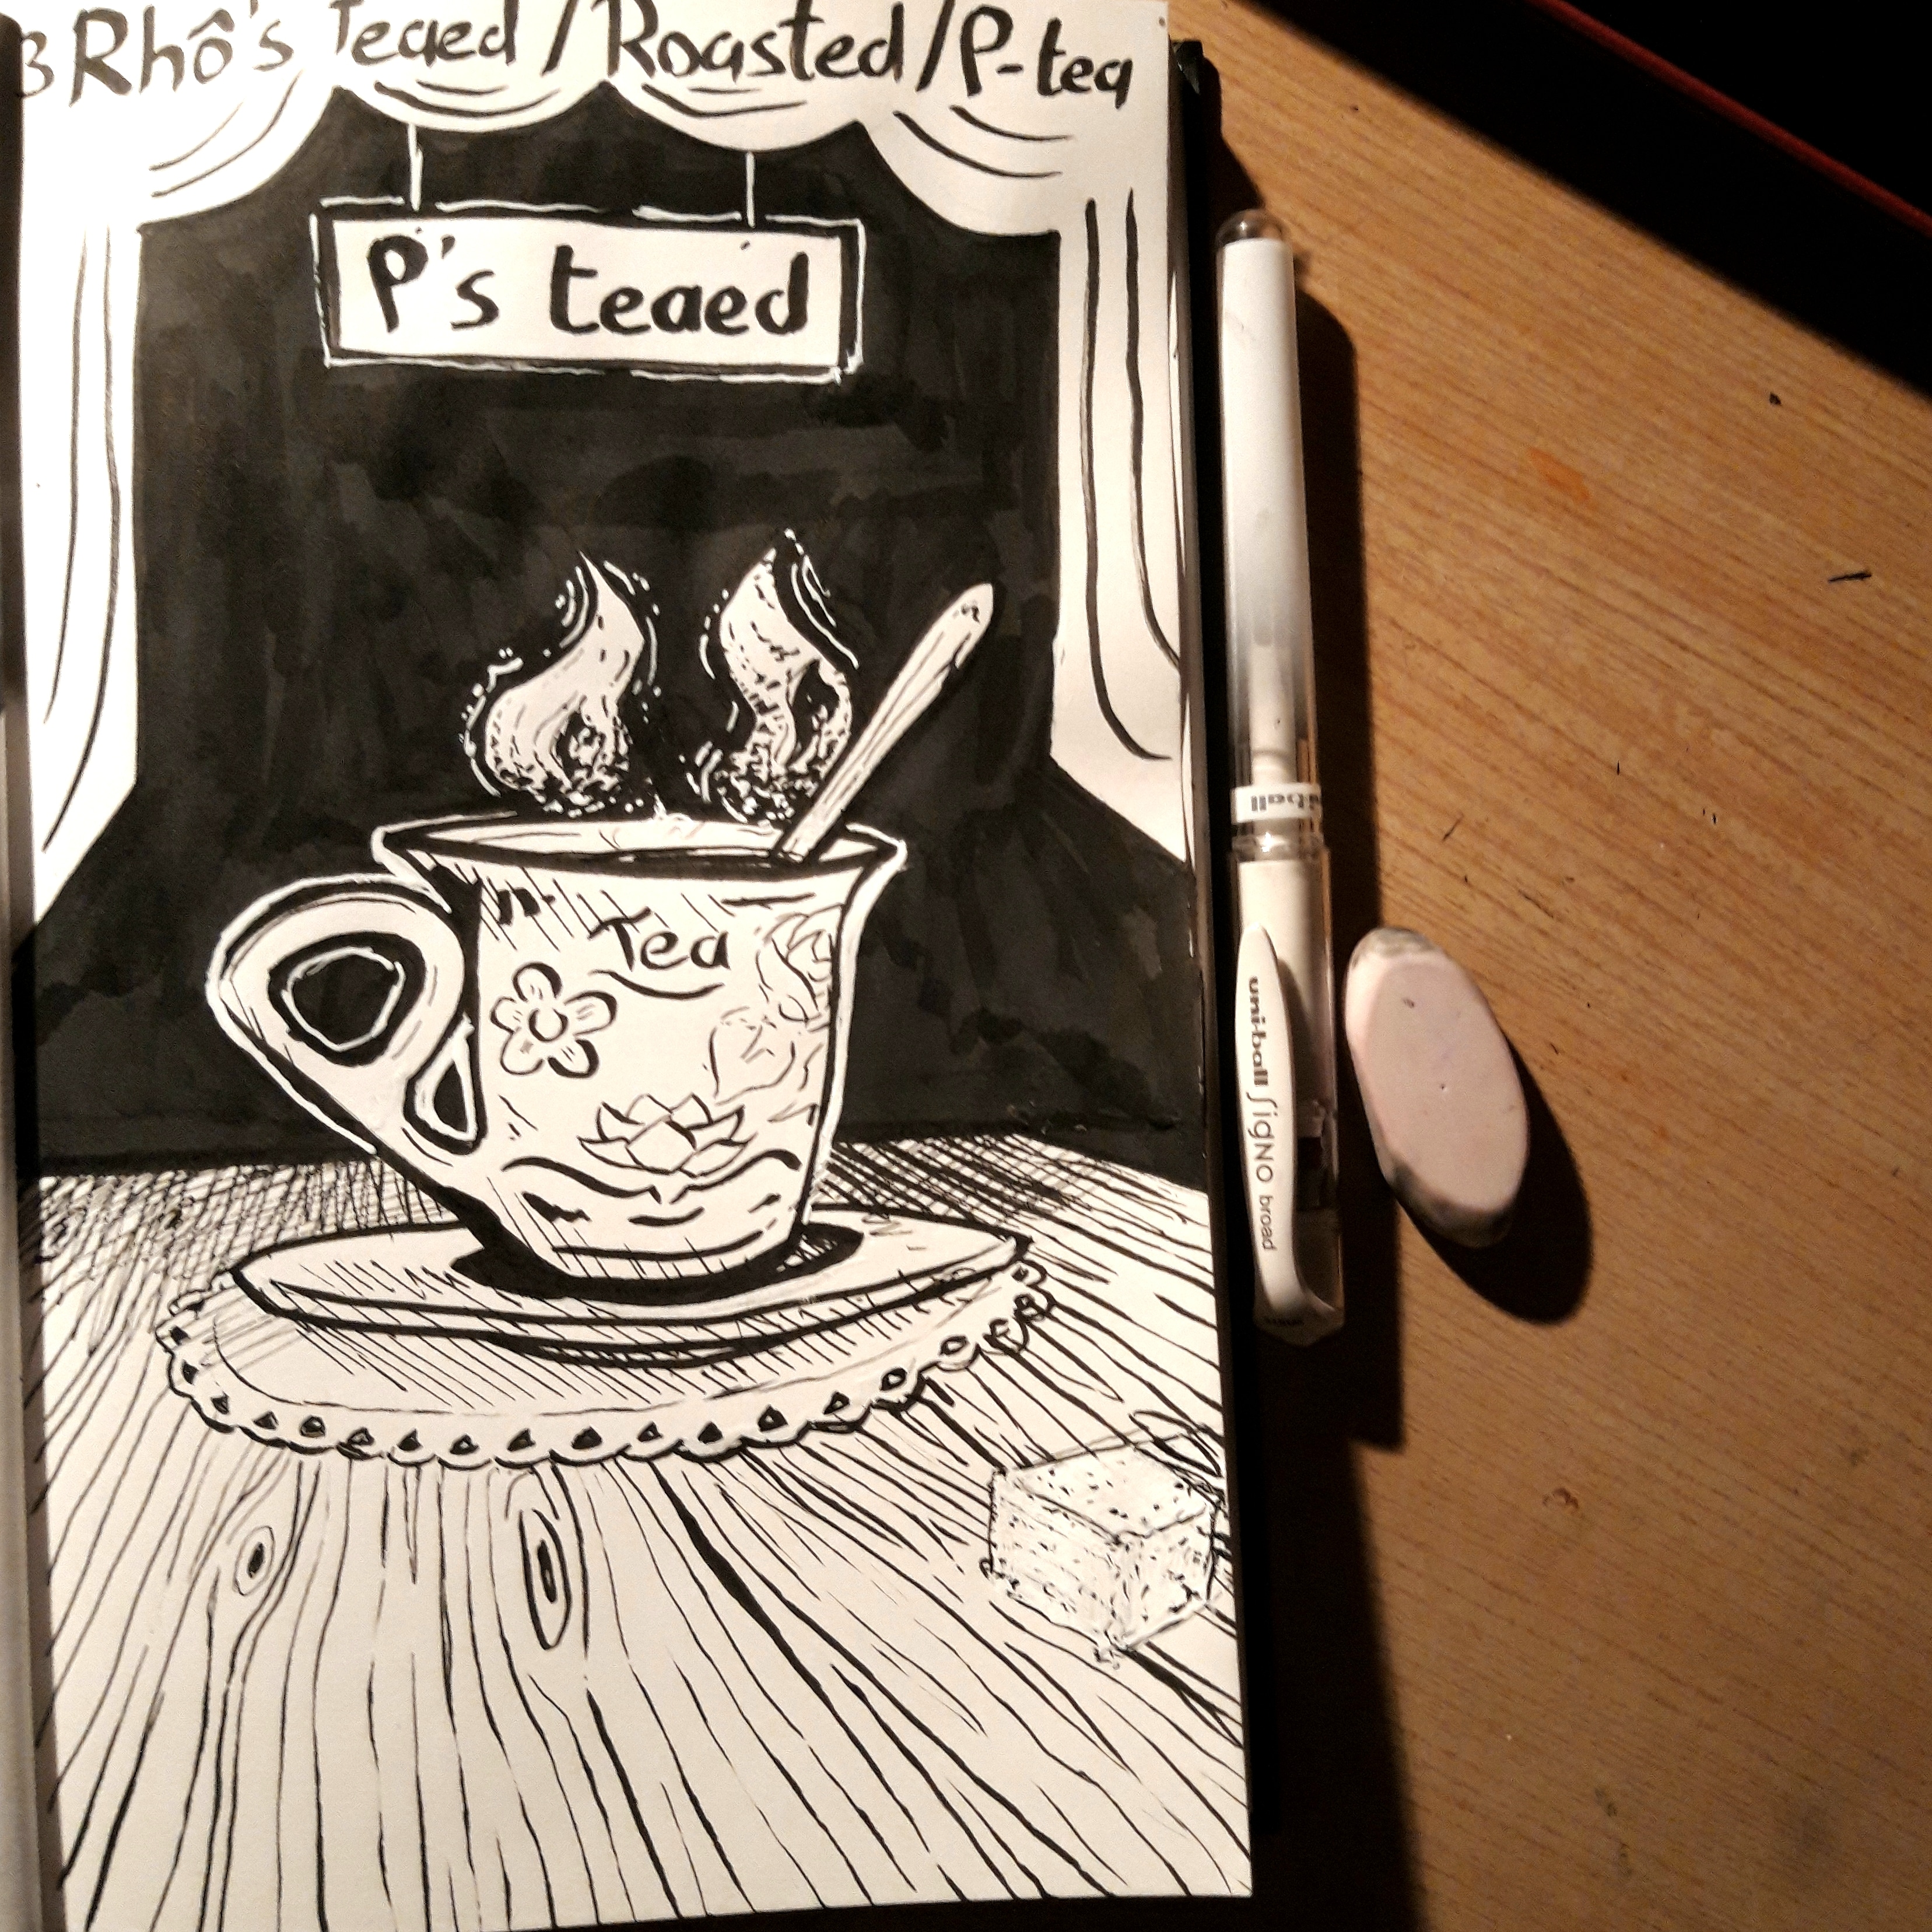 3 Rhô's Teaed / Roasted / P-tea
P's teaed
Tea
uni-ball
uni-ball SigNO broad